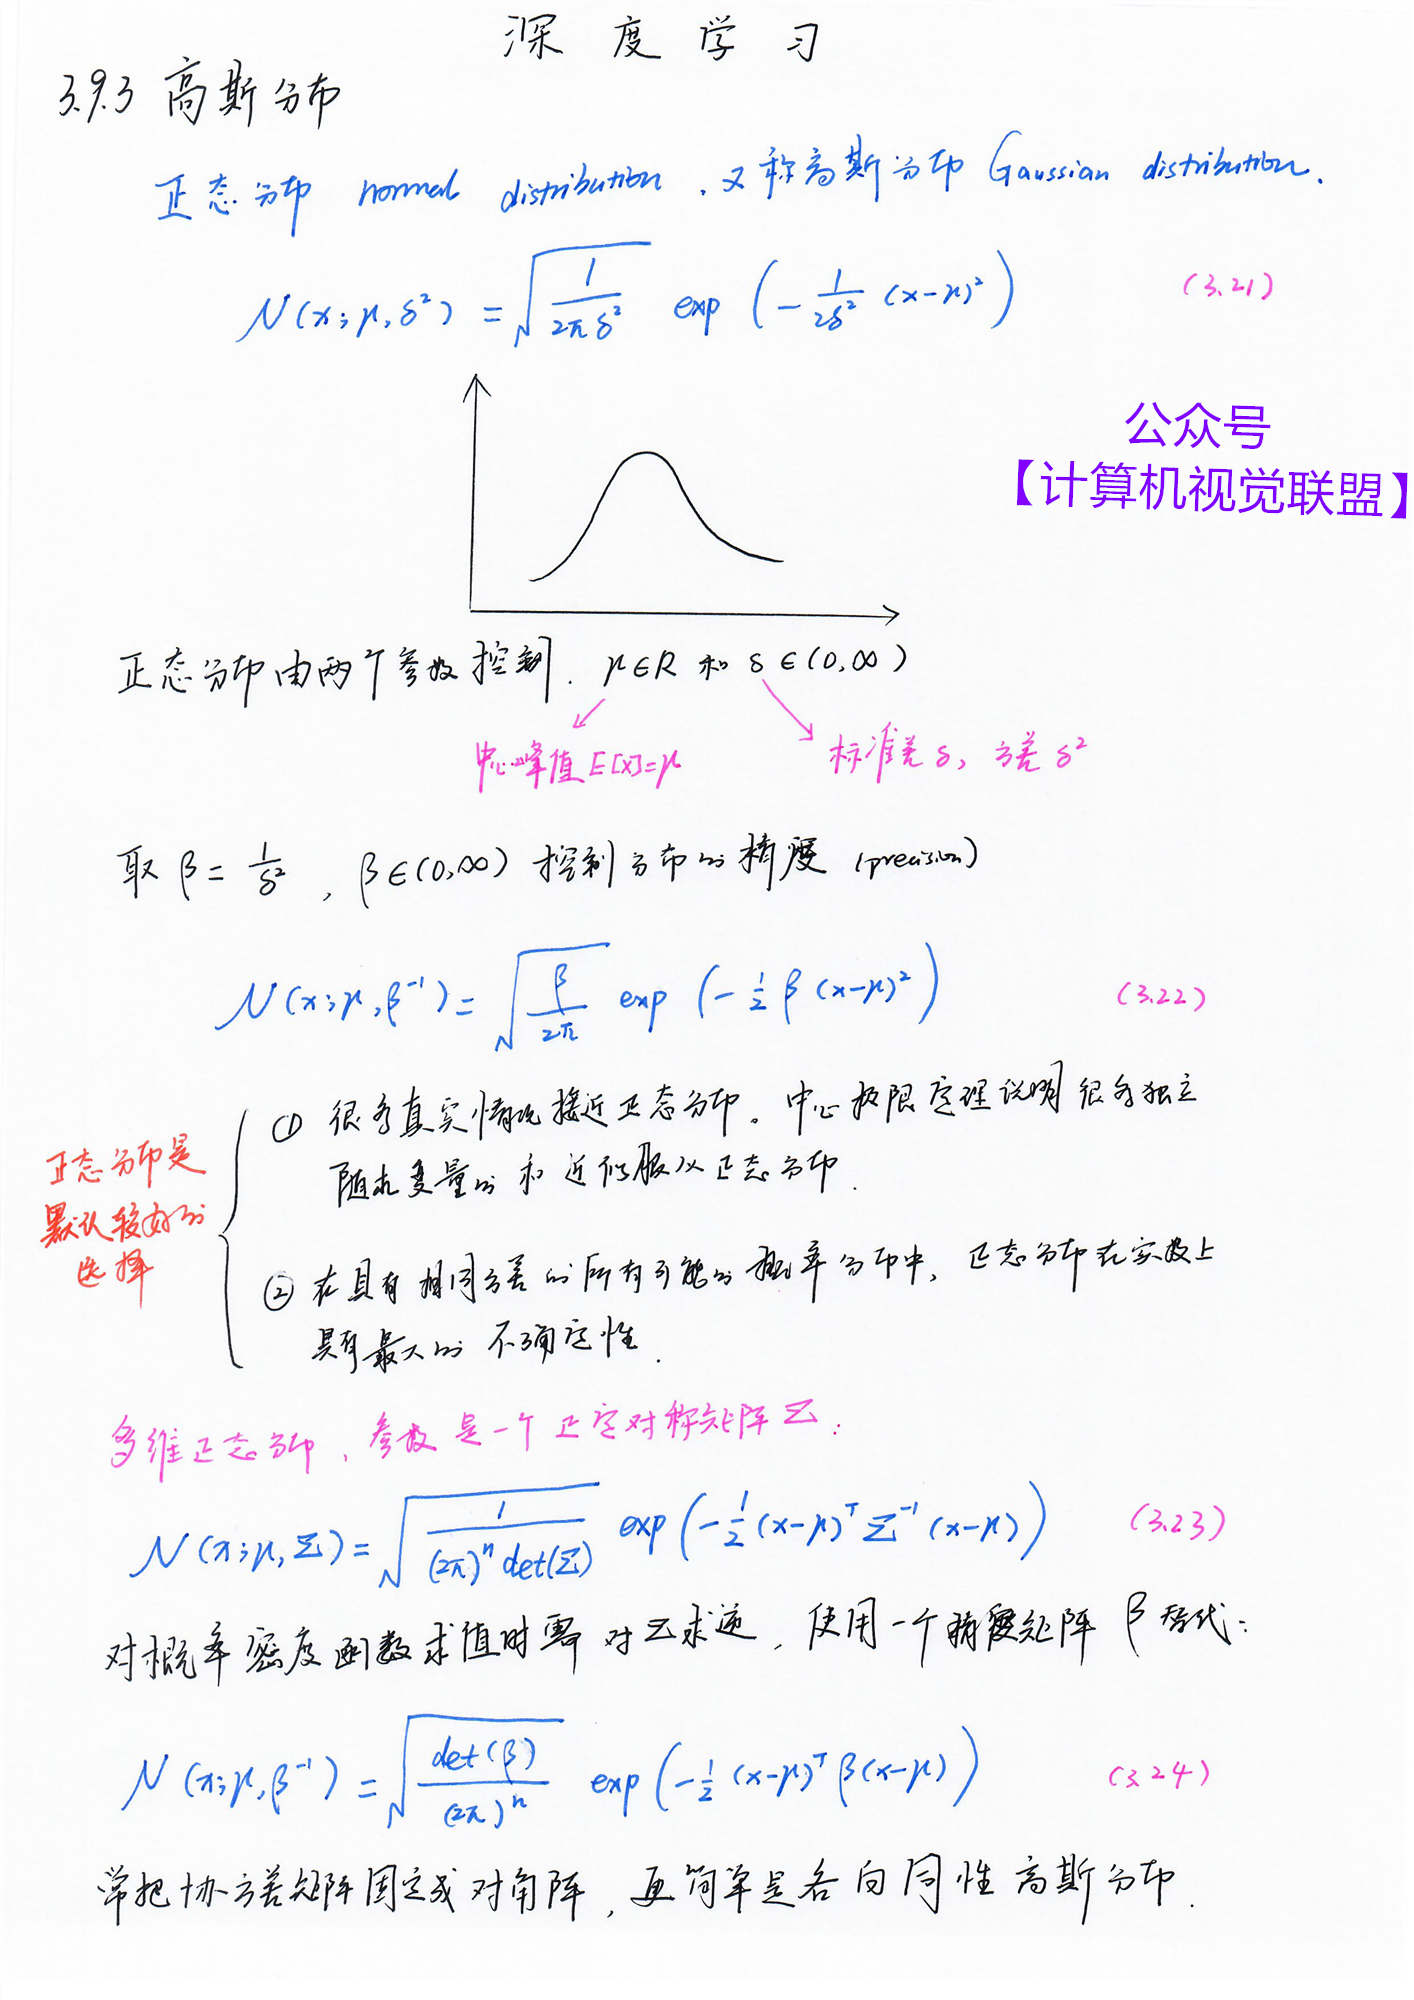 深度学习
3.9.3 高斯分布
正态分布 normal distribution，又称高斯分布 Gaussian distribution.
N(x; μ, δ²) = √(1/(2πδ²)) exp(-1/(2δ²) (x-μ)²) (3.21)
公众号
【计算机视觉联盟】
正态分布由两个参数控制. μ∈R 和 δ∈(0,∞)
中心峰值 E[x]=μ 标准差 δ, 方差 δ²
取 β = 1/δ², β∈(0,∞) 控制分布的精度 (precision)
N(x; μ, β⁻¹) = √(β/(2π)) exp(-1/2 β (x-μ)²) (3.22)
正态分布是
默认较好的
选择
① 很多真实情况接近正态分布。中心极限定理说明很多独立
随机变量的和近似服从正态分布.
② 在具有相同方差的所有可能的概率分布中, 正态分布在实数上
具有最大的不确定性.
多维正态分布, 参数是一个正定对称矩阵 Σ:
N(x; μ, Σ) = √(1/((2π)ⁿ det(Σ))) exp(-1/2 (x-μ)ᵀ Σ⁻¹ (x-μ)) (3.23)
对概率密度函数求值时需对Σ求逆, 使用一个精度矩阵 β 替代:
N(x; μ, β⁻¹) = √(det(β)/(2π)ⁿ) exp(-1/2 (x-μ)ᵀ β(x-μ)) (3.24)
常把协方差矩阵固定成对角阵, 更简单是各向同性高斯分布.